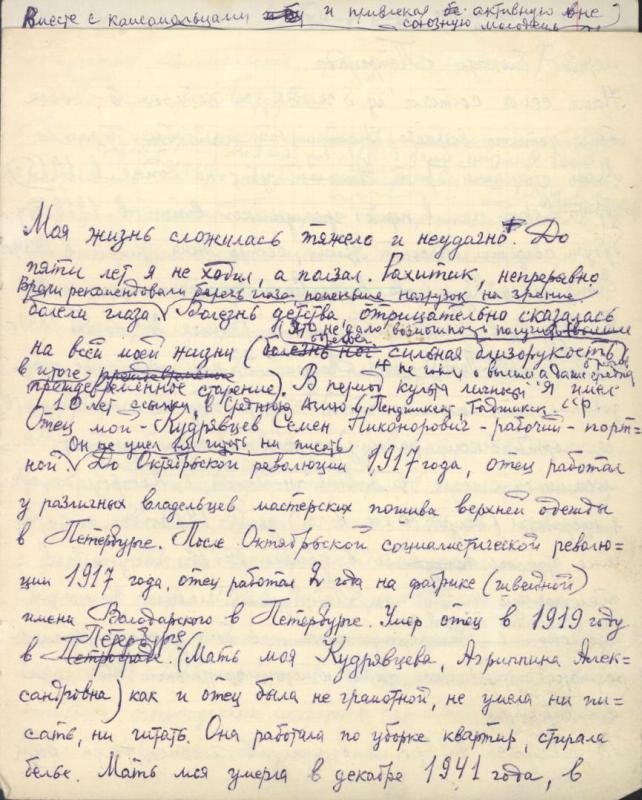 Вместе с комсомольцами и привлекая активную вне
союзную молодежь
Моя жизнь сложилась тяжело и неудачно. До
пяти лет я не ходил, а ползал. Рахитик, непрерывно
Врачи рекомендовали беречь глаза поменьше нагрузок на зрение
болели глаза. Болезнь детства, отрицательно сказалась
Это не дало возможность получить высшее
на всей моей жизни (болезнь ног сильная близорукость,
не только высшего а даже среднего
в итоге
преждевременное старение). В период культа личности Я имел
10 лет ссылки, в Среднюю Азию г. Пенджикент, Таджикск. ССР
Отец мой - Кудрявцев Семен Никонорович - рабочий - порт=
Он не умел ни читать, ни писать
ной. До Октябрьской революции 1917 года, отец работал
у различных владельцев мастерских пошива верхней одежды
в Петербурге. После Октябрьской социалистической револю=
ции 1917 года, отец работал 2 года на фабрике (швейной)
имени Володарского в Петербурге. Умер отец в 1919 году
Петербурге
в Петрограде. (Мать моя Кудрявцева, Агриппина Алек=
сандровна) как и отец была не грамотной, не умела ни пи=
сать, ни читать. Она работала по уборке квартир, стирала
белье. Мать моя умерла в декабре 1941 года, в